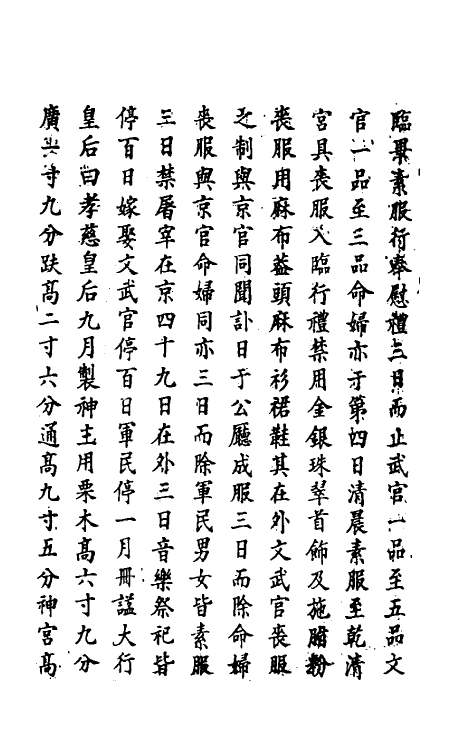 臨畢素服行奉慰禮三日而止武官一品至五品文
官一品至三品命婦亦于第四日清晨素服至乾清
宮具喪服入臨行禮禁用金銀珠翠首飾及施脂粉
喪服用麻布葢頭麻布衫裙鞋其在外文武官喪服
之制與京官同聞訃日于公廳成服三日而除命婦
喪服與京官命婦同亦三日而除軍民男女皆素服
三日禁屠宰在京四十九日在外三日音樂祭祀皆
停百日嫁娶文武官停百日軍民停一月冊諡大行
皇后曰孝慈皇后九月製神主用栗木高六寸九分
廣六寸九分趺高二寸六分通高九寸五分神宮高